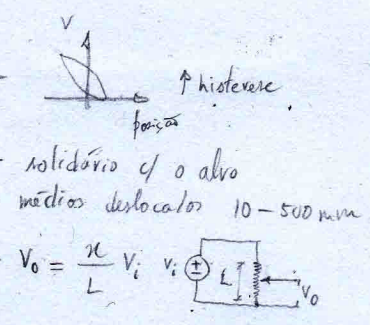 V
↑ histerese
posição
solidário c/ o alvo
médios deslocados 10-500 mm
V₀ = x/L Vᵢ Vᵢ L V₀